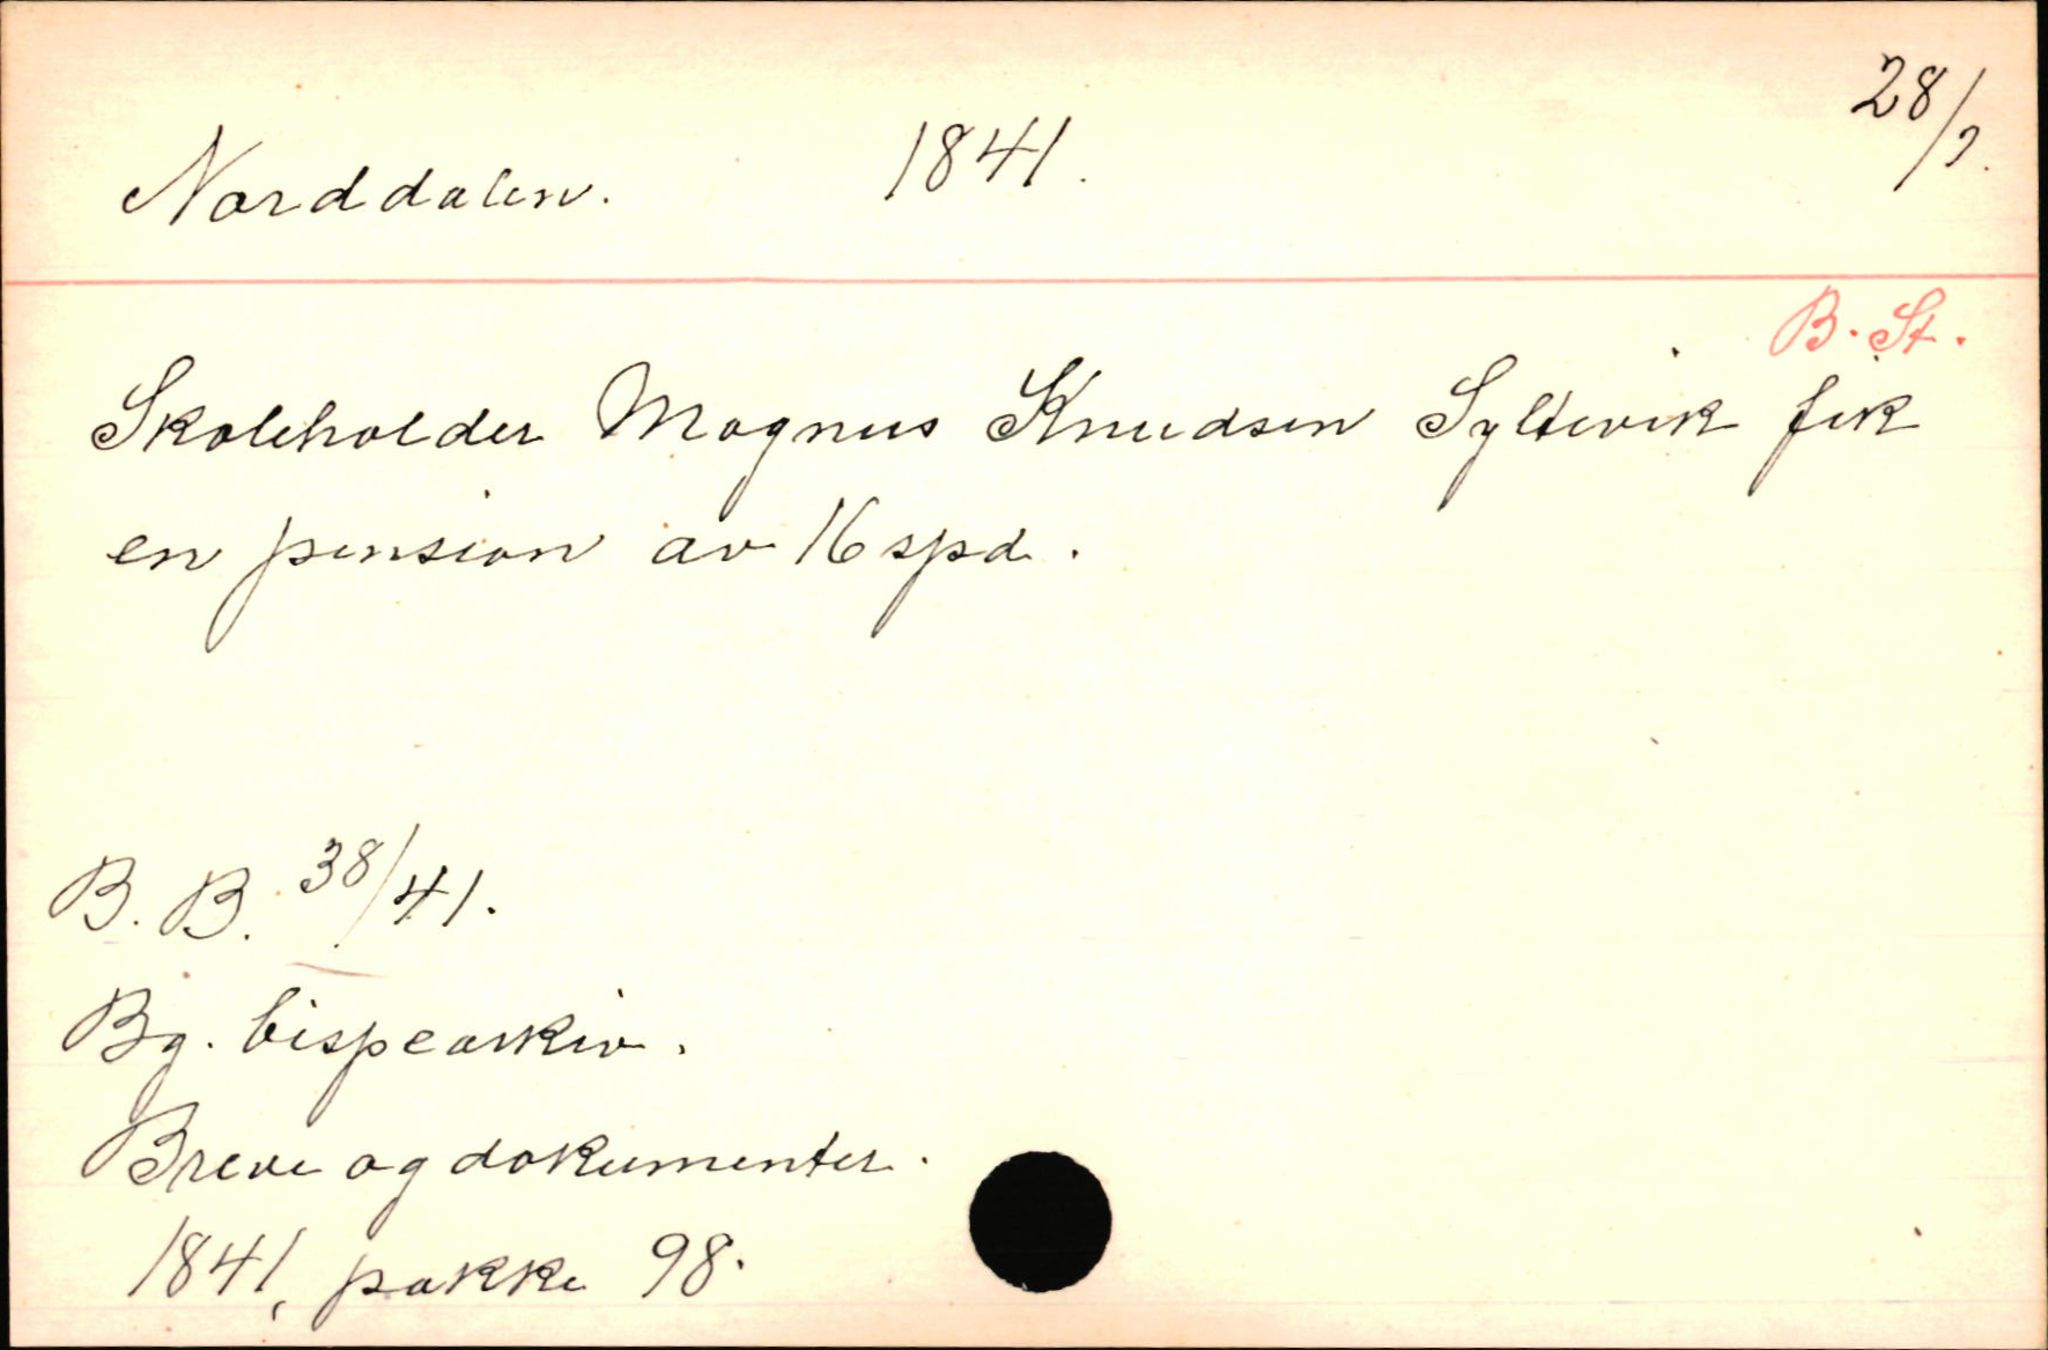 Norddalen. 1841. 28/7.
B. St.
Skoleholder Magnus Knudsen Syltevik fik
en pension av 16 spd.
B. B. 38/41.
Bg. bispearkiv.
Breve og dokumenter.
1841, pakke 98.